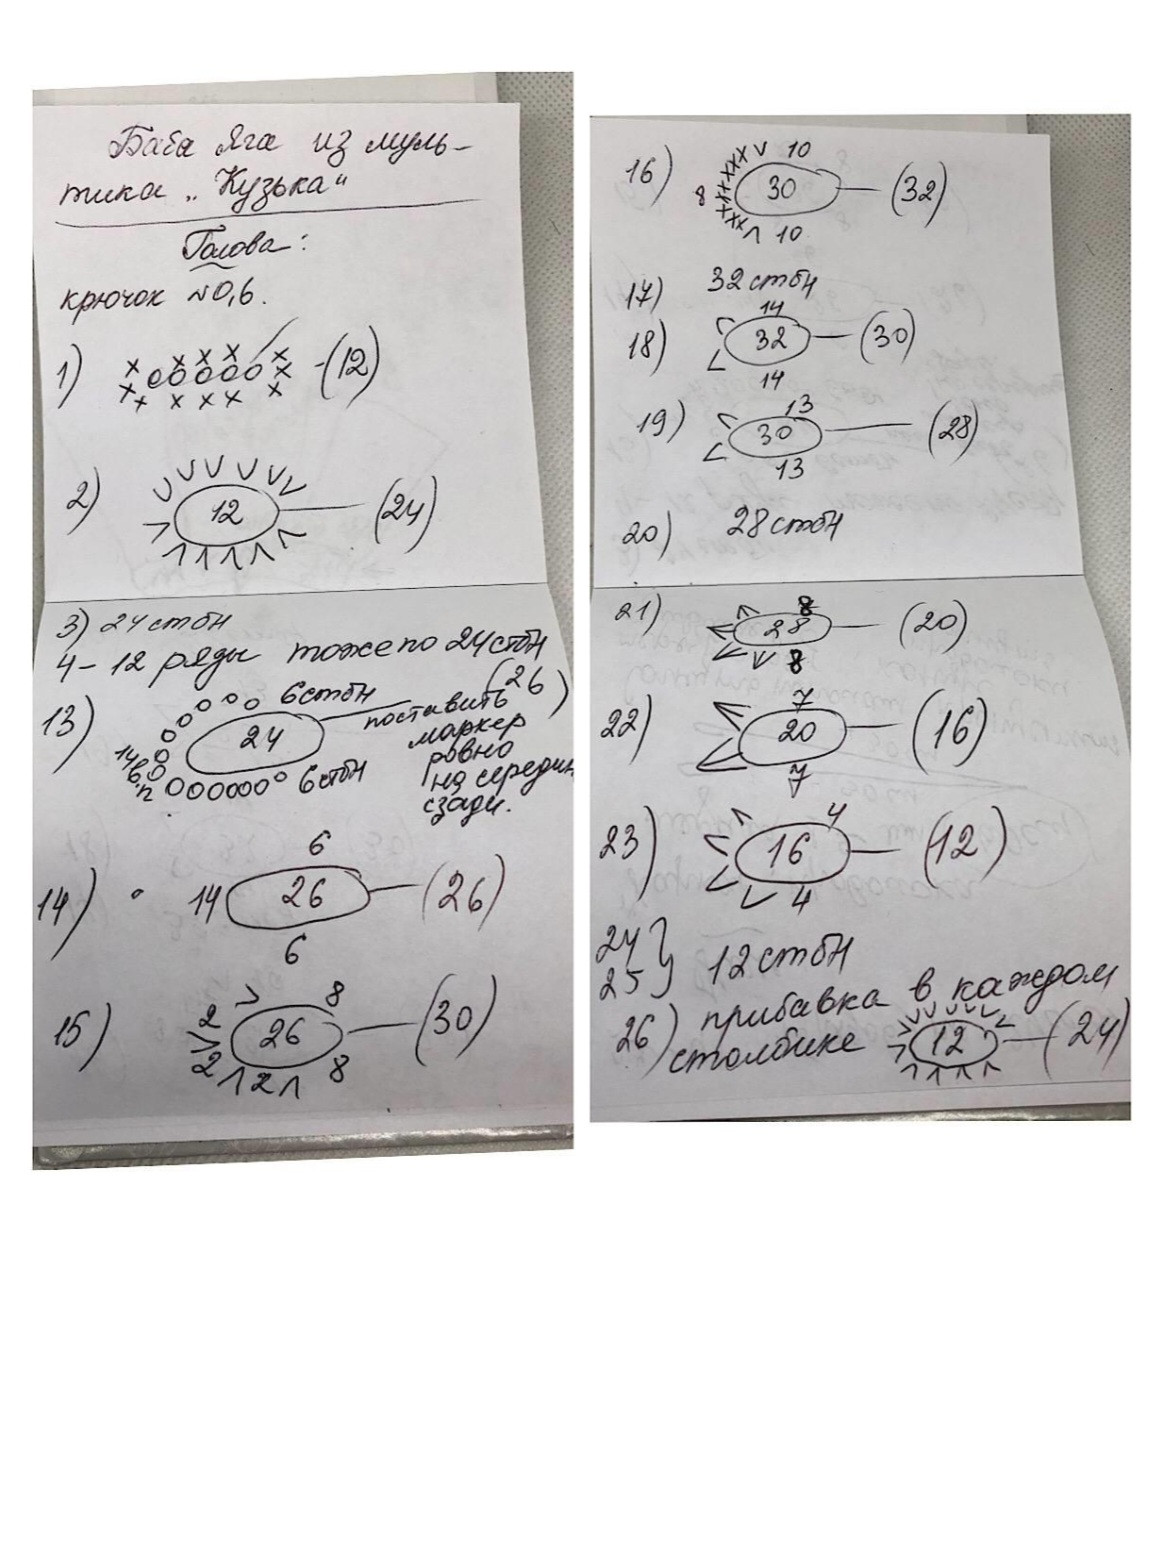 Баба Яга из муль-
тика „Кузька“
Голова:
крючок №0,6.
1) (12)
2) 12 (24)
3) 24 стбн
4 - 12 ряды тоже по 24 стбн
13) 24 6 стбн (26)
14 в.п 6 стбн
поставить
маркер
ровно
на середин
сзади.
14) 6
14 26 (26)
6
15) 2 8
26 (30)
2 2 8
16) 10
8 30 (32)
10
17) 32 стбн
18) 14
32 (30)
14
19) 13
30 (28)
13
20) 28 стбн
21) 8
28 (20)
8
22) 7
20 (16)
7
23) 4
16 (12)
4
24
25} 12 стбн
26) прибавка в каждом
столбике 12 (24)